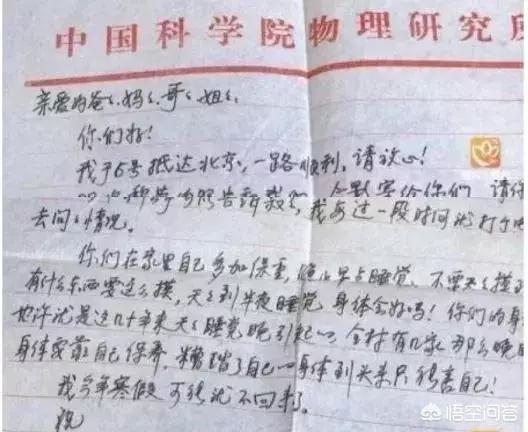 中国科学院物理研究所
亲爱的爸爸、妈妈、哥哥、姐姐
你们好!
我于6号抵达北京,一路顺利,请放心!
告诉我 给你们 请
去问情况。我每过一段时间就打个电
你们在家里自己多加保重,晚上早点睡觉,不要天天摸
有什么东西要这么摸,天天到半夜睡觉身体会好吗!你们的身
也许就是这几十年来天天睡觉晚引起 全村有几家那么晚
身体要靠自己保养,糟踏了自己 身体到头来只能害自己!
我今年寒假可能就不回来了。
祝
悟空问答